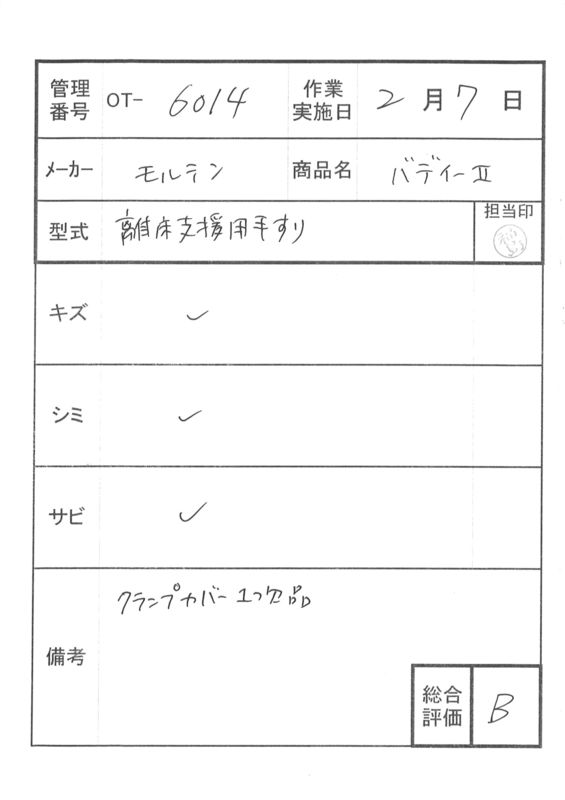 管理番号 OT- 6014 作業実施日 2月7日
メーカー モルテン 商品名 バディーⅡ
型式 離床支援用手すり 担当印
キズ ✓
シミ ✓
サビ ✓
備考 クランプカバー1つ欠品
総合評価 B